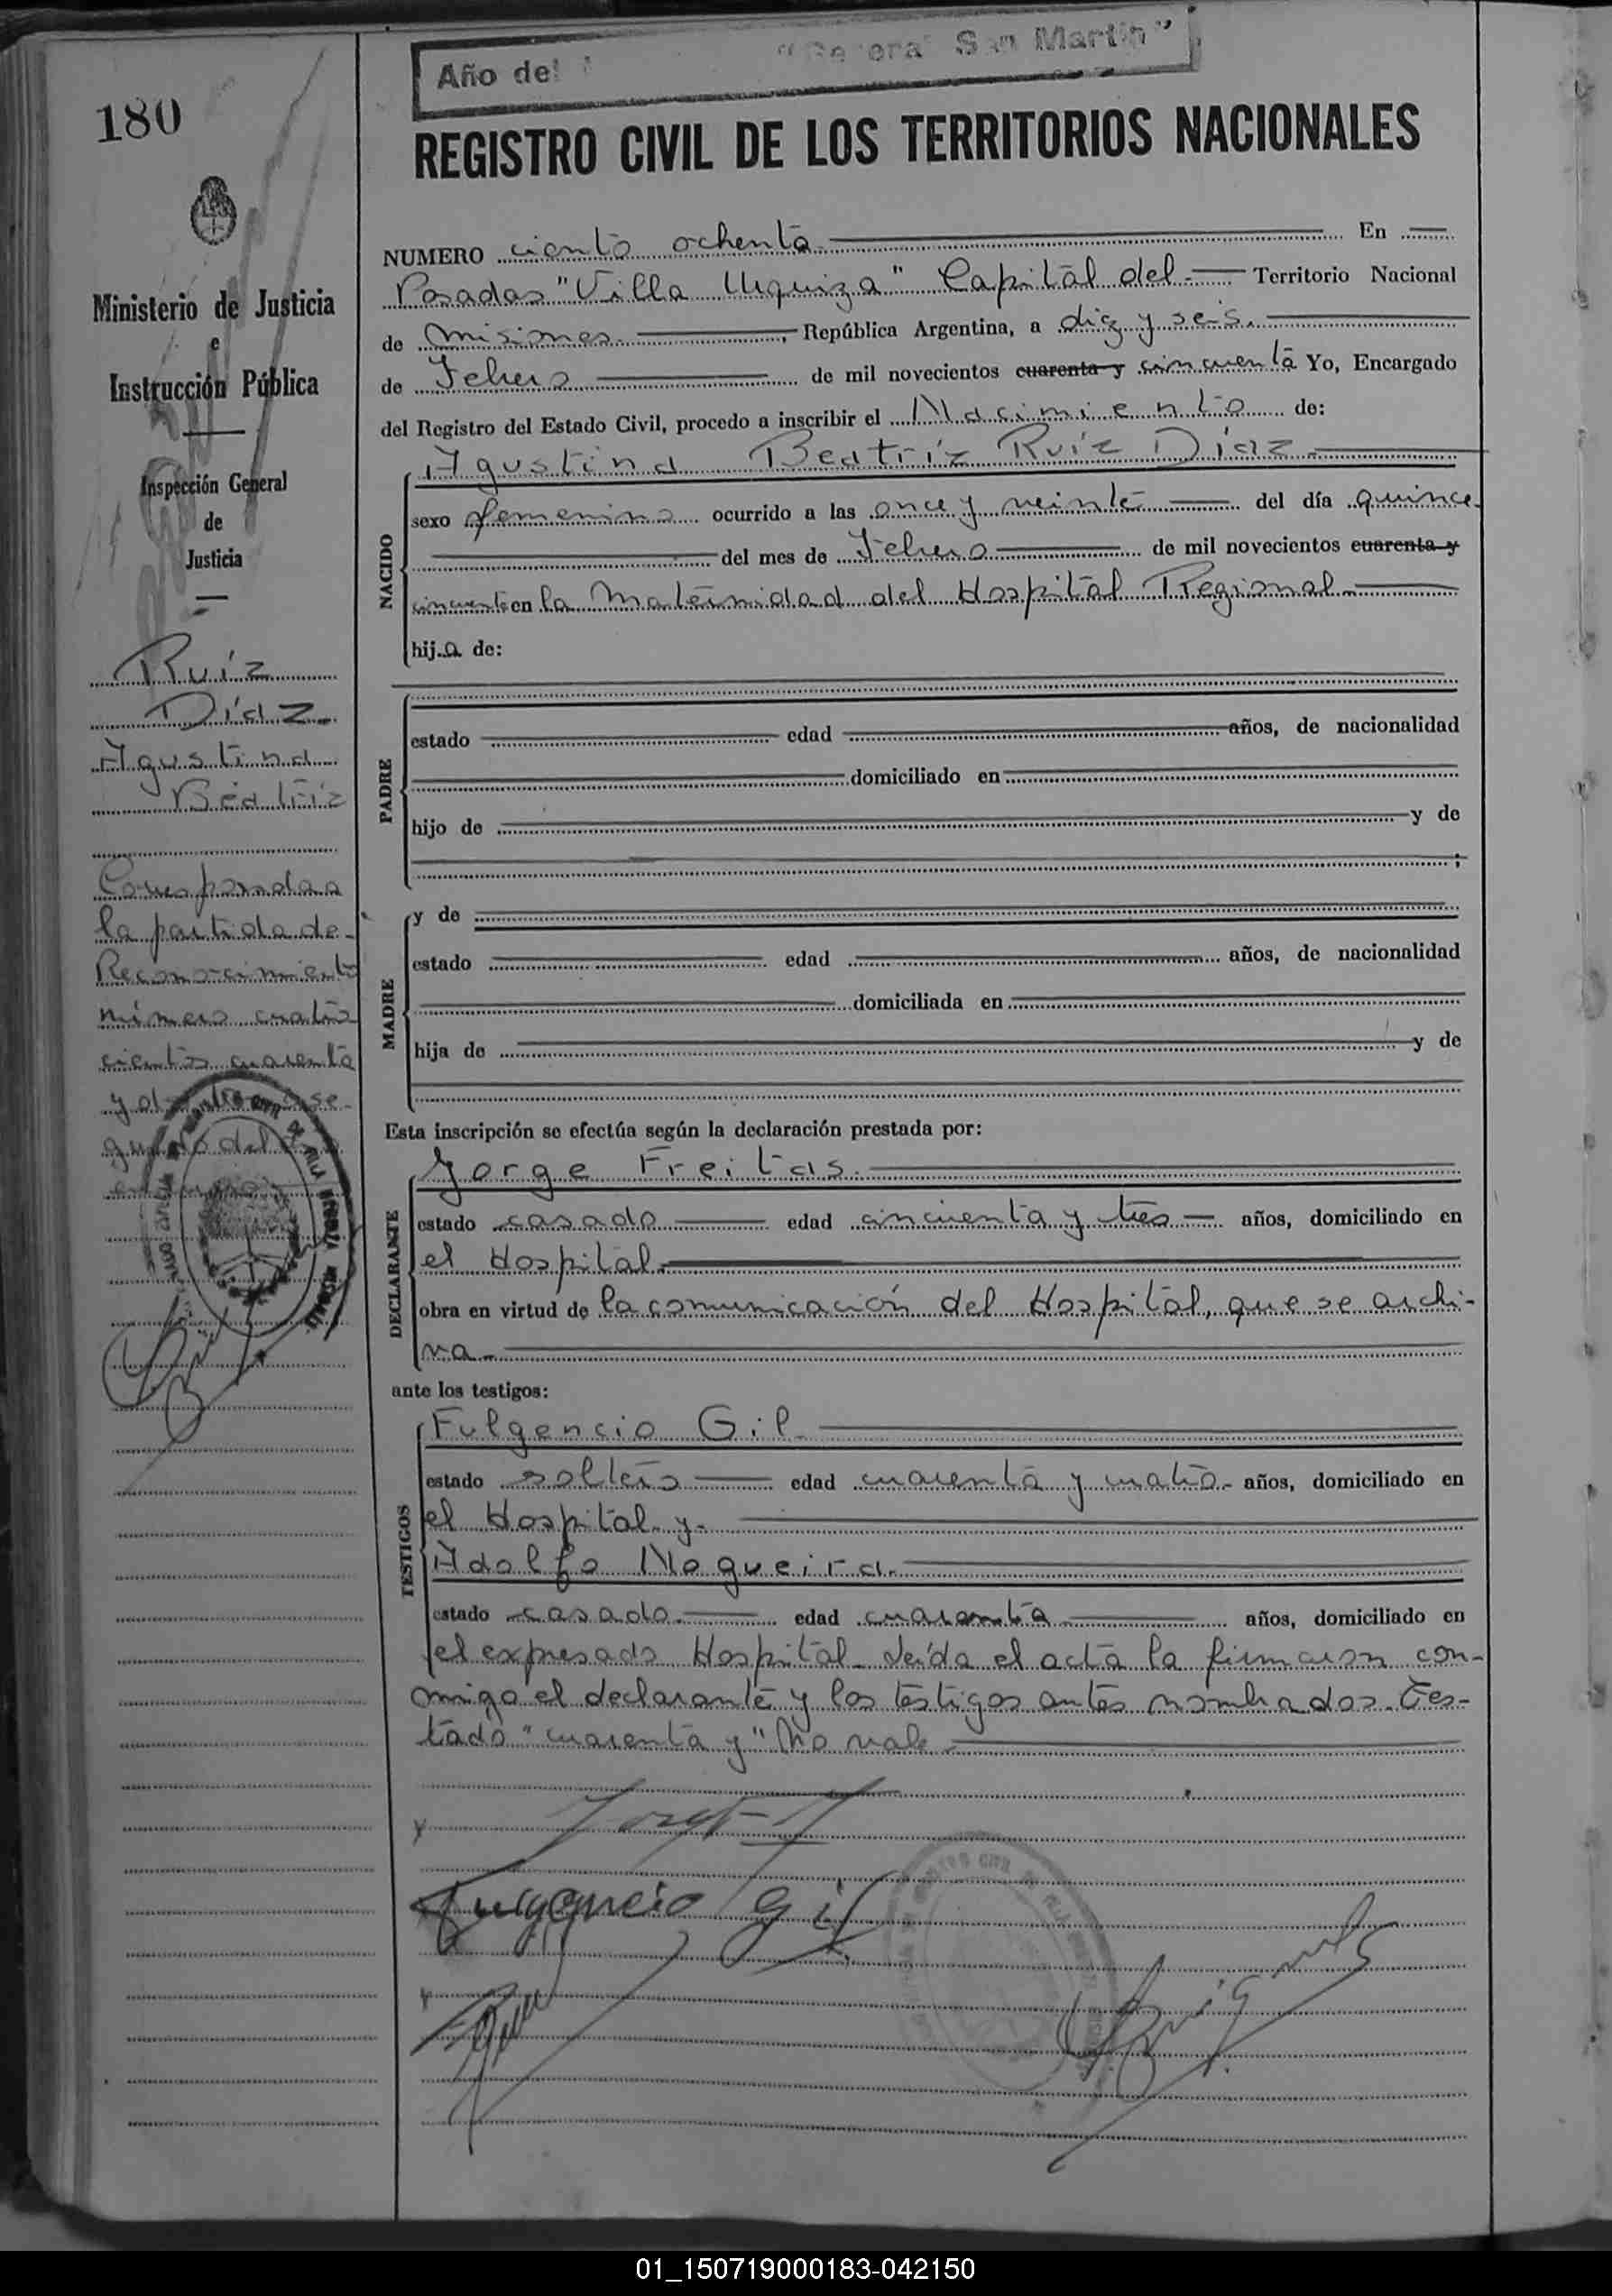 Año del "General San Martín"
180
REGISTRO CIVIL DE LOS TERRITORIOS NACIONALES
Ministerio de Justicia
e
Instrucción Pública
Inspección General
de
Justicia
Ruíz
Díaz
Agustina
Beatríz
Corresponda a
la partida de
Reconocimiento
número cuatro
cientos cuarenta
NUMERO ciento ochenta En
Posadas "Villa Urquiza" Capital del Territorio Nacional
de Misiones, República Argentina, a diez y seis
de Febrero de mil novecientos cuarenta y cincuenta Yo, Encargado
del Registro del Estado Civil, procedo a inscribir el Nacimiento de:
NACIDO
Agustina Beatríz Ruíz Díaz
sexo femenino ocurrido a las once y veinte del día quince
del mes de Febrero de mil novecientos cuarenta y
cincuenta en la Maternidad del Hospital Regional
hija de:
PADRE
estado edad años, de nacionalidad
domiciliado en
hijo de y de
;
MADRE
y de
estado edad años, de nacionalidad
domiciliada en
hija de y de
Esta inscripción se efectúa según la declaración prestada por:
DECLARANTE
Jorge Freitas
estado casado edad cincuenta y tres años, domiciliado en
el Hospital
obra en virtud de la comunicación del Hospital, que se archi-
va
ante los testigos:
TESTIGOS
Fulgencio Gil
estado soltero edad cuarenta y cuatro años, domiciliado en
el Hospital y
Adolfo Nogueira
estado casado edad cuarenta años, domiciliado en
el expresado Hospital. Leída el acta la firmaron con-
migo el declarante y los testigos antes nombrados. Tes-
tado "cuarenta y" No vale
Fulgencio Gil
01_150719000183-042150